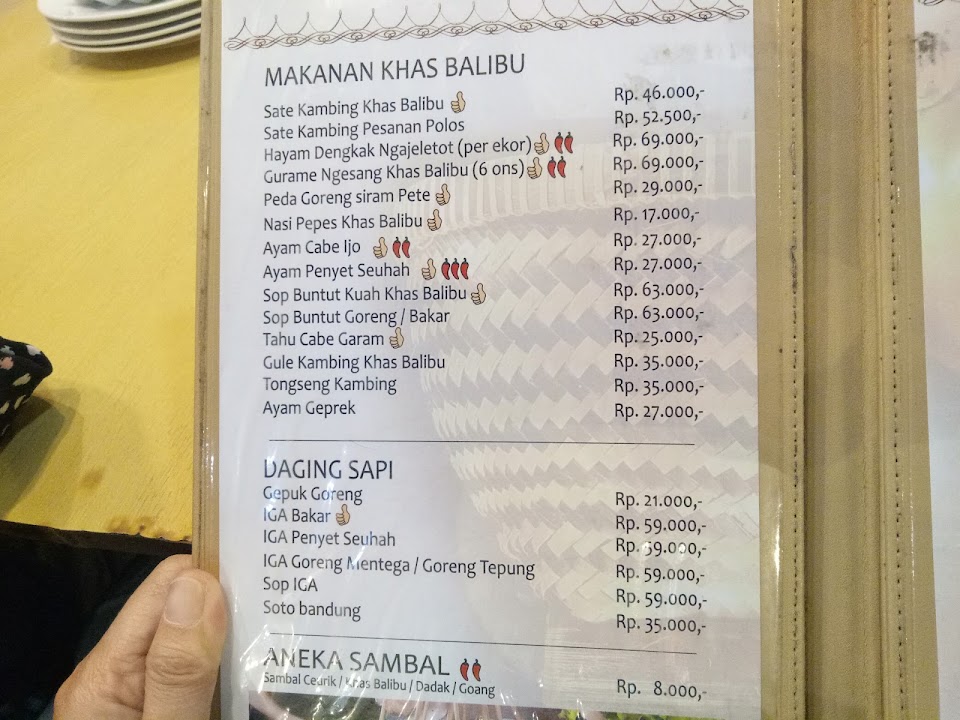 MAKANAN KHAS BALIBU
Sate Kambing Khas Balibu Rp. 46.000,-
Sate Kambing Pesanan Polos Rp. 52.500,-
Hayam Dengkak Ngajeletot (per ekor) Rp. 69.000,-
Gurame Ngesang Khas Balibu (6 ons) Rp. 69.000,-
Peda Goreng siram Pete Rp. 29.000,-
Nasi Pepes Khas Balibu Rp. 17.000,-
Ayam Cabe Ijo Rp. 27.000,-
Ayam Penyet Seuhah Rp. 27.000,-
Sop Buntut Kuah Khas Balibu Rp. 63.000,-
Sop Buntut Goreng / Bakar Rp. 63.000,-
Tahu Cabe Garam Rp. 25.000,-
Gule Kambing Khas Balibu Rp. 35.000,-
Tongseng Kambing Rp. 35.000,-
Ayam Geprek Rp. 27.000,-
DAGING SAPI
Gepuk Goreng Rp. 21.000,-
IGA Bakar Rp. 59.000,-
IGA Penyet Seuhah Rp. 59.000,-
IGA Goreng Mentega / Goreng Tepung Rp. 59.000,-
Sop IGA Rp. 59.000,-
Soto bandung Rp. 35.000,-
ANEKA SAMBAL
Sambal Ceurik / Khas Balibu / Dadak / Goang Rp. 8.000,-